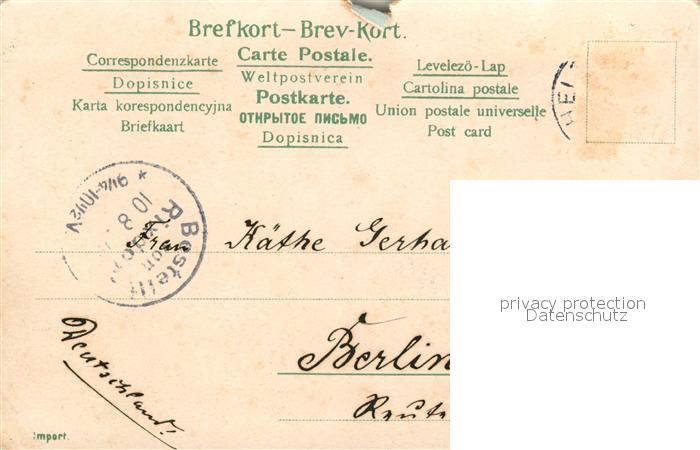 Brefkort–Brev-Kort.
Correspondenzkarte
Carte Postale.
Levelező-Lap
Dopisnice
Weltpostverein
Cartolina postale
Karta korespondencyjna
Postkarte.
Union postale universelle
Briefkaart
ОТКРЫТОЕ ПИСЬМО
Post card
Dopisnica
HEL
Bestellt
vom
10 8
9¼-10½V
Frau Käthe Gerha
privacy protection
Datenschutz
Deutschland!
Berlin
Reute
Import.